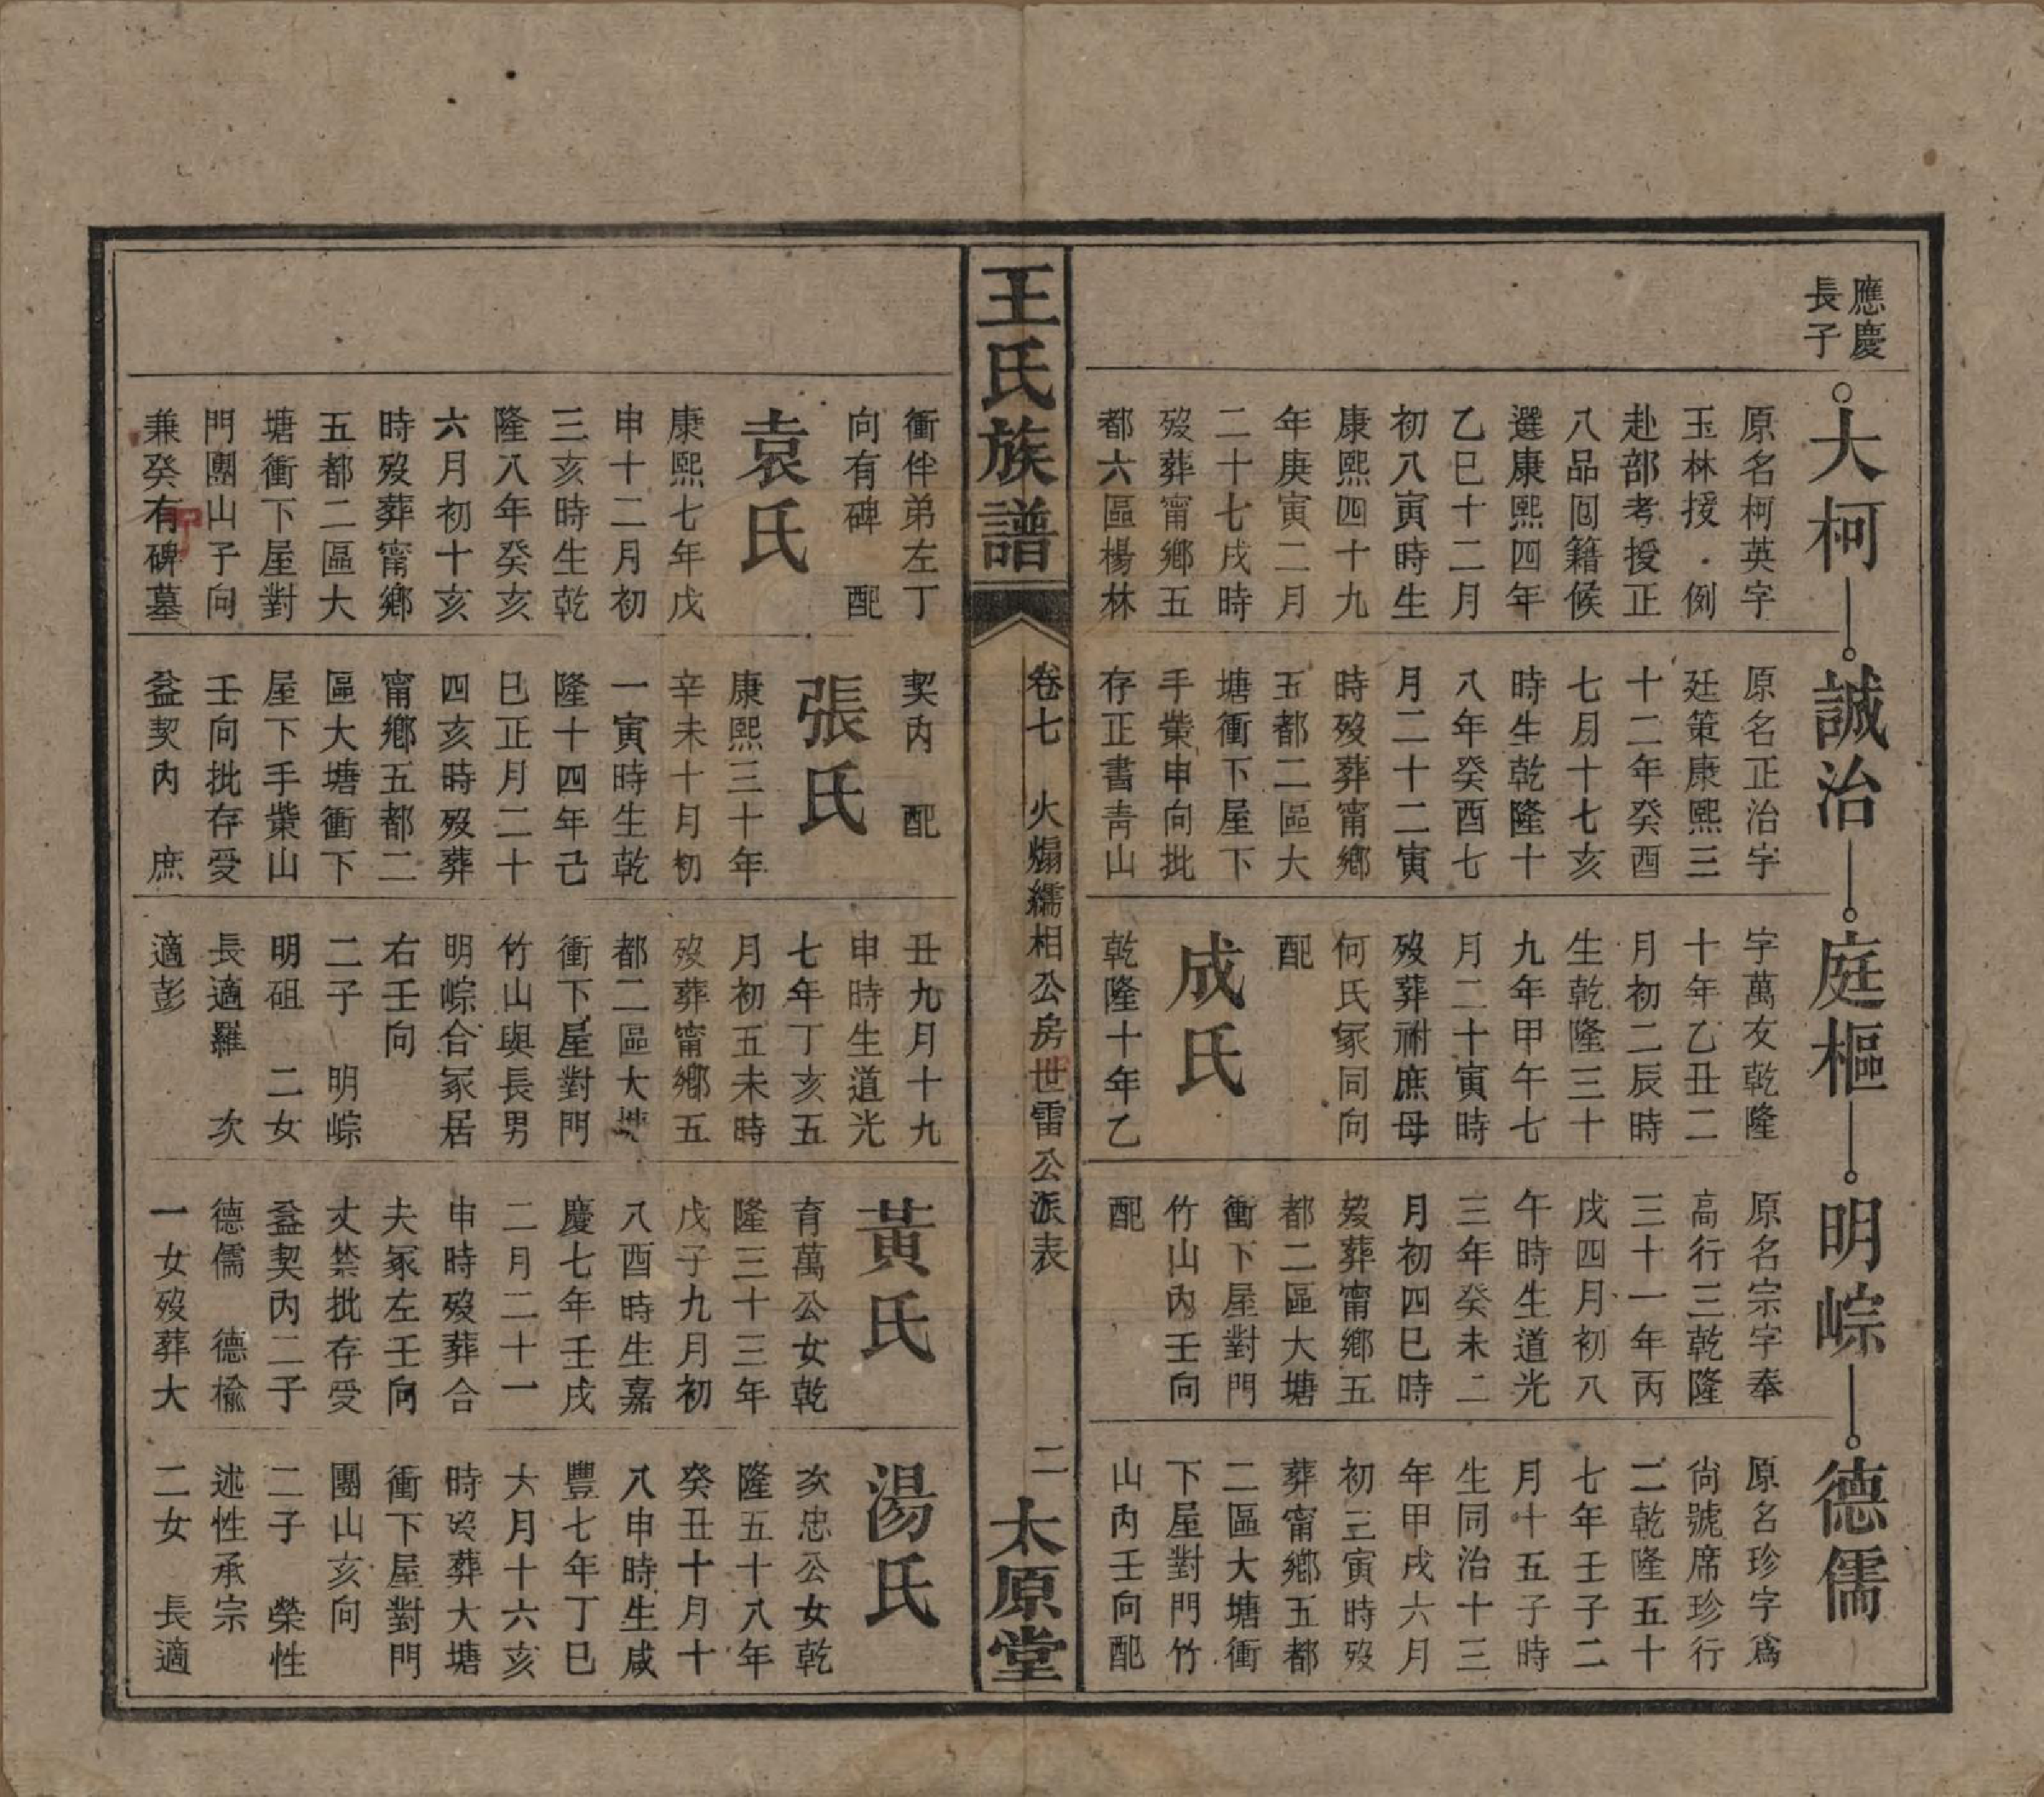 應慶
長子
大柯
原名柯英字
玉林援例
赴部考授正
八品回籍候
選康熙四年
乙巳十二月
初八寅時生
康熙四十九
年庚寅二月
二十七戌時
歿葬甯鄉五
都六區楊林
誠治
原名正治字
廷策康熙三
十二年癸酉
七月十七亥
時生乾隆十
八年癸酉七
月二十二寅
時歿葬甯鄉
五都二區大
塘衝下屋下
手業申向批
存正書青山
庭樞
字萬友乾隆
十年乙丑二
月初二辰時
生乾隆三十
九年甲午七
月二十寅時
歿葬祔庶母
何氏冢同向
配
成氏
乾隆十年乙
明崇
原名宗字奉
高行三乾隆
三十一年丙
戌四月初八
午時生道光
三年癸未二
月初四巳時
歿葬甯鄉五
都二區大塘
衝下屋對門
竹山內壬向
配
德儒
原名珍字爲
尙號席珍行
二乾隆五十
七年壬子二
月十五子時
生同治十三
年甲戌六月
初三寅時歿
葬甯鄉五都
二區大塘衝
下屋對門竹
山內壬向配
王氏族譜
卷七 火煸繻相公房世雷公派表
二
太原堂
衝伴弟左丁
向有碑 配
袁氏
康熙七年戊
申十二月初
三亥時生乾
隆八年癸亥
六月初十亥
時歿葬甯鄉
五都二區大
塘衝下屋對
門團山子向
兼癸有碑墓
契內 配
張氏
康熙三十年
辛未十月初
一寅時生乾
隆十四年己
巳正月二十
四亥時歿葬
甯鄉五都二
區大塘衝下
屋下手業山
壬向批存受
益契內 庶
丑九月十九
申時生道光
七年丁亥五
月初五未時
歿葬甯鄉五
都二區大塘
衝下屋對門
竹山與長男
明崇合冢居
右壬向
二子 明崇
明砠 二女
長適羅 次
適彭
黃氏
育萬公女乾
隆三十三年
戊子九月初
八酉時生嘉
慶七年壬戌
二月二十一
申時歿葬合
夫冢左壬向
丈禁批存受
益契內二子
德儒 德楡
一女歿葬大
湯氏
亥忠公女乾
隆五十八年
癸丑十月十
八申時生咸
豐七年丁巳
六月十六亥
時歿葬大塘
衝下屋對門
團山亥向
二子 榮性
述性承宗
二女 長適